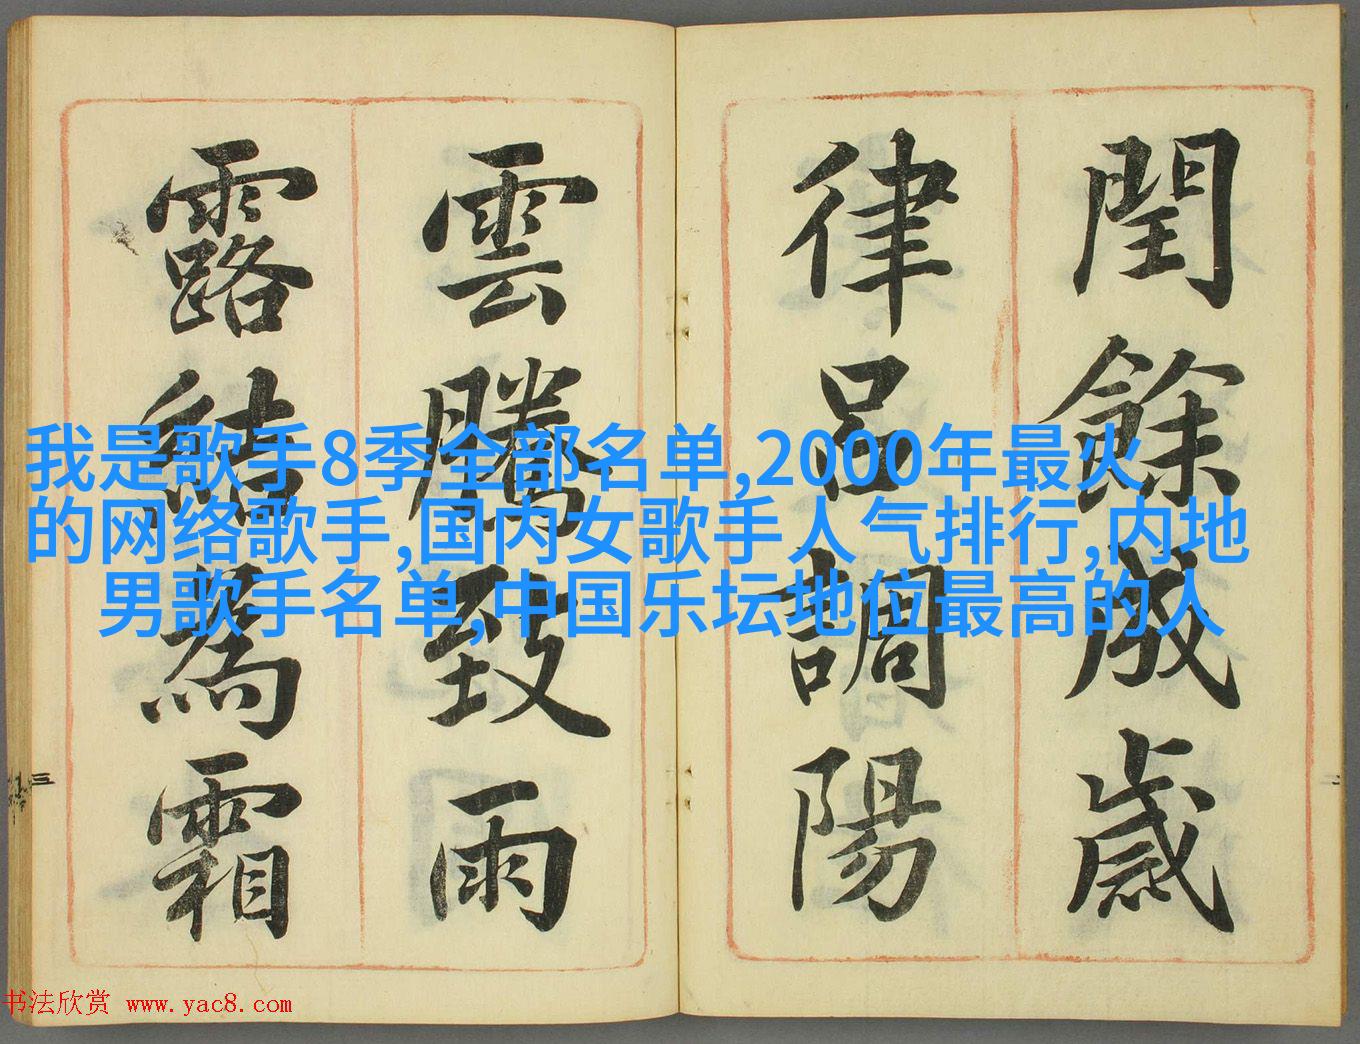 閏餘成歲
律呂調陽
雲騰致雨
露結為霜
我是歌手8季全部名单,2000年最火
的网络歌手,国内女歌手人气排行,内地
男歌手名单,中国乐坛地位最高的人
三
二
书法欣赏 www.yac8.com